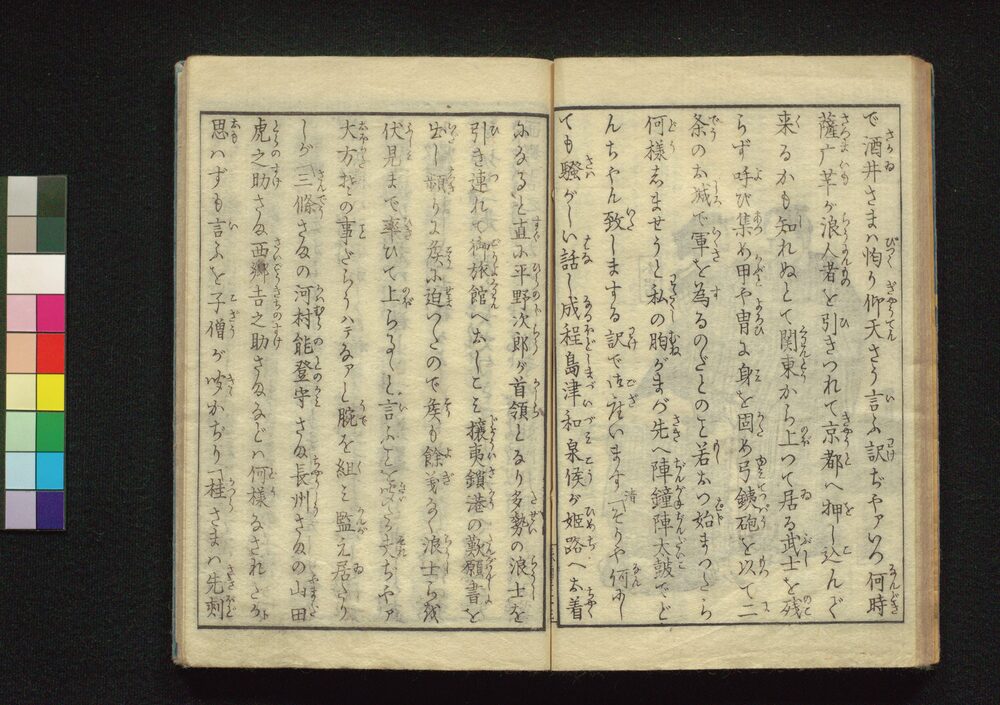 で酒井さまハ恟り仰天さう言ふ訳ぢやアいつ何時
薩广芋が浪人者を引きつれて京都へ押し込んで
来るかも知れぬとて関東から上つて居る武士を残
らず呼び集め甲や冑に身を固め弓銕砲を以て二
条のお城で軍を為るのだとのこと若おつ始まつたら
何様しませうと私の胸がまづ先へ陣鐘陣太鼓でど
んちやん致しまする訳で御座います清「そりや何しろ
ても騒がしい話し成程島津和泉侯が姫路へお着
になると直に平野次郎が首領となり多勢の浪士を
引き連れて御旅館へ出しこみ攘夷鎖港の歎願書を
出し頻りに矦に迫つたので矦も餘義なく浪士らを
伏見まで率ひて上らるゝと言ふことぢやア
大方其の事だらうハテなアし腕を組み監え居たり
しが「三條さまの河村能登守さま長州さまの山田
虎之助さま西郷吉之助さまなどハ何様なされたか
思ハずも言ふを子僧が聞かぢり「桂さまハ先刻